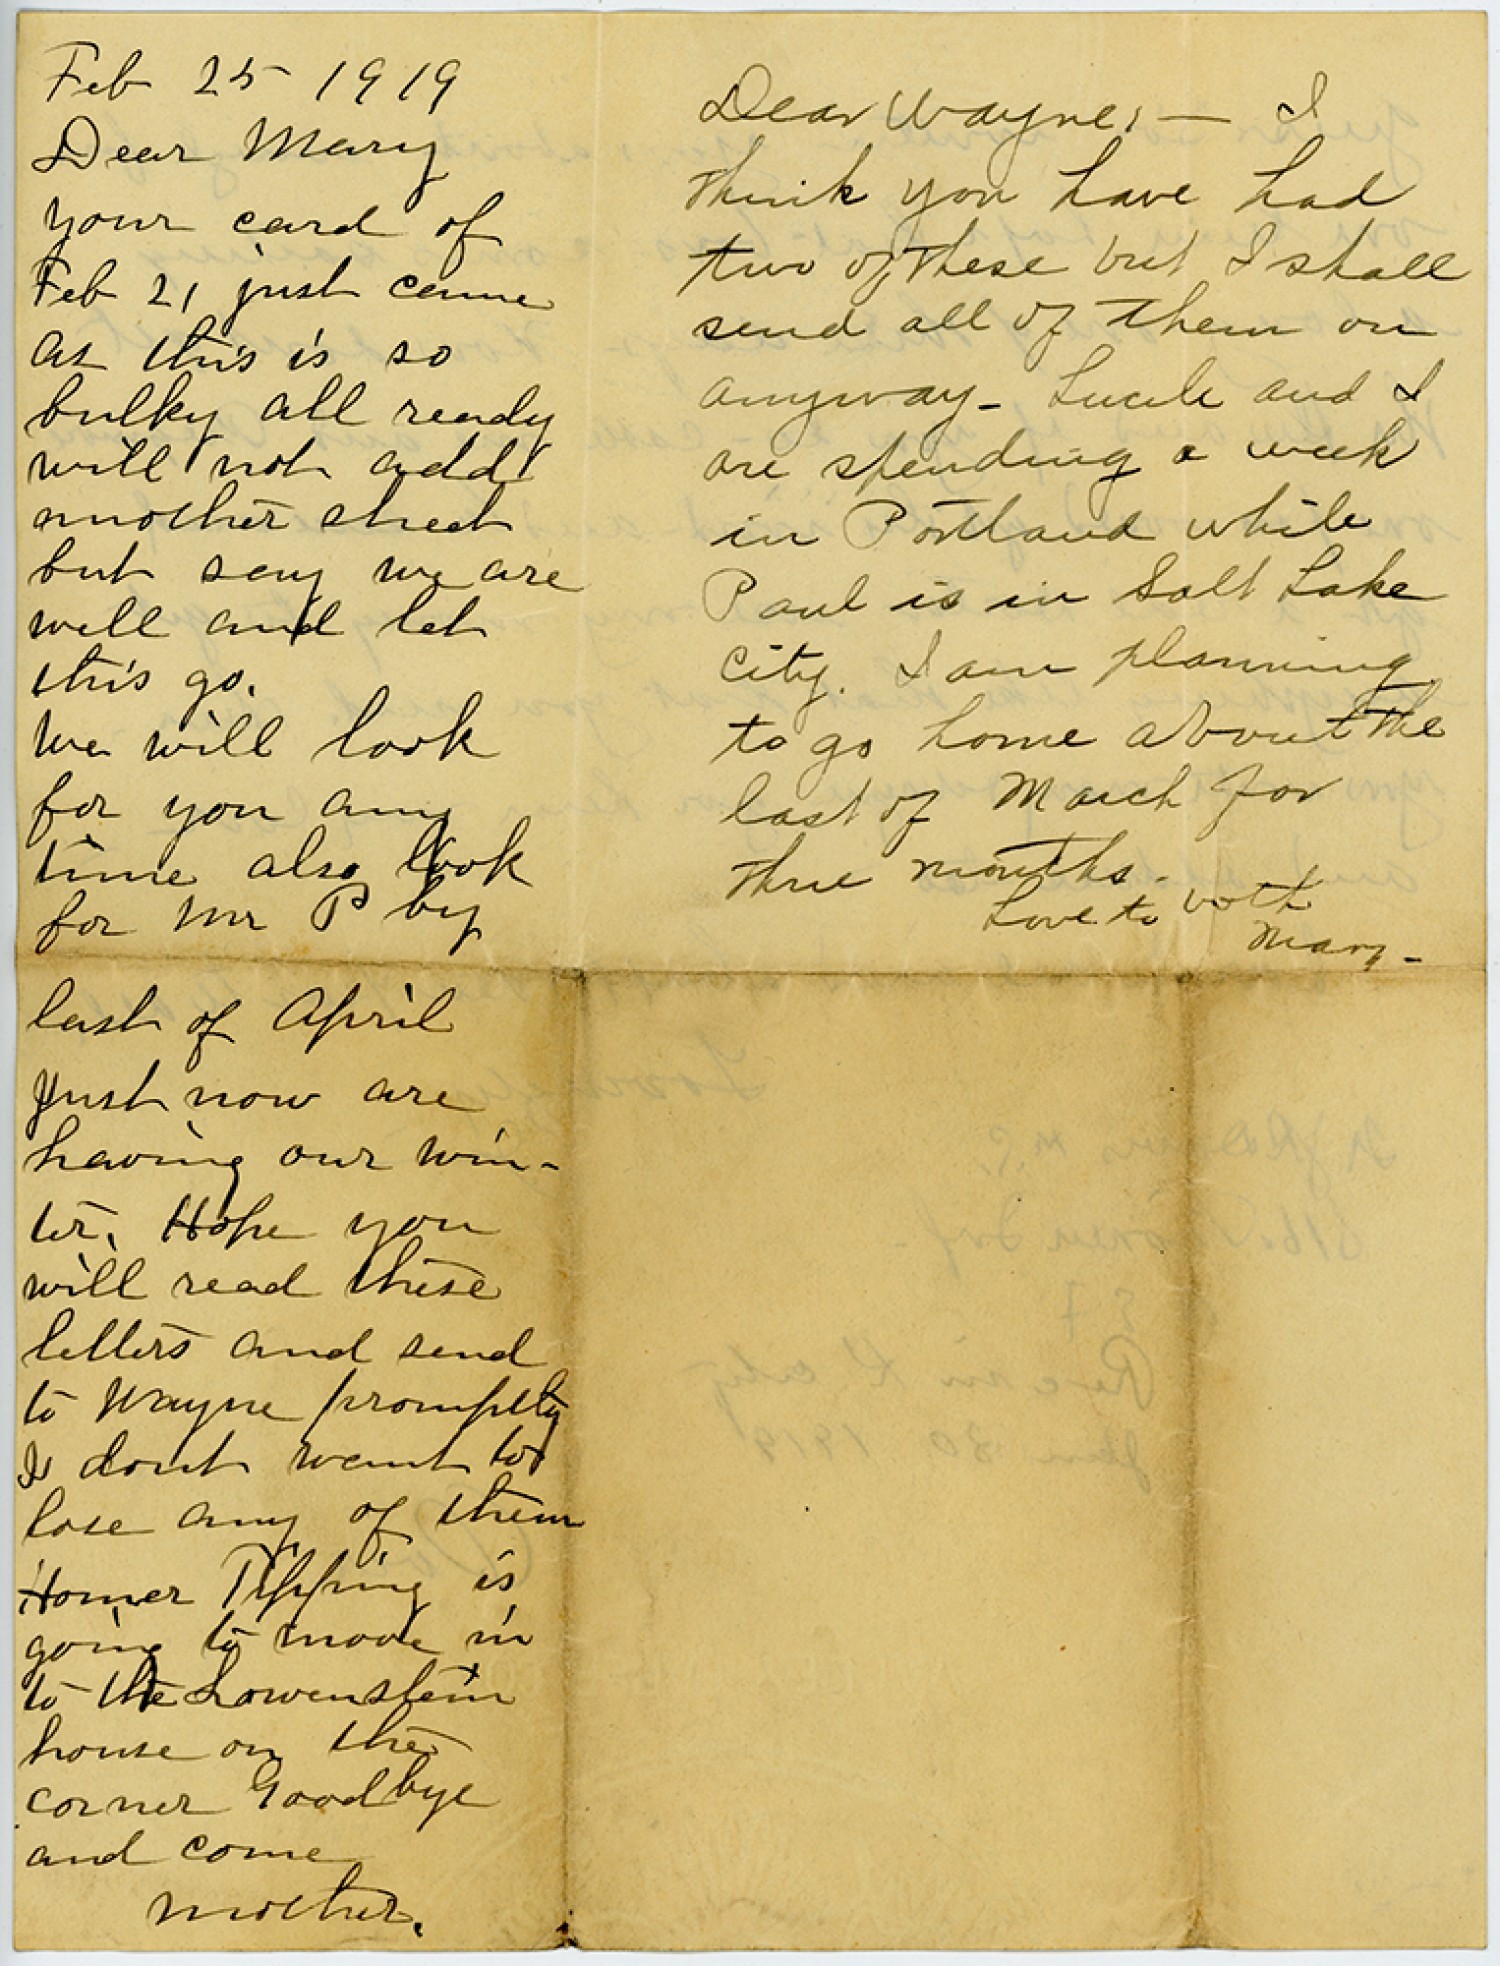 Feb 25 1919
Dear Mary
your card of
Feb 21 just came
as this is so
bulky all ready
will not add
another sheet
but say we are
well and let
this go.
We will look
for you any
time also look
for Mr P by
last of April
Just now are
having our win-
ter. Hope you
will read these
letters and send
to Wayne promptly
I dont want to
lose any of them
Homer Tipping is
going to move in
to the Lowenstein
house on the
corner Good bye
and come
Mother.
Dear Wayne, — I
think you have had
two of these but I shall
send all of them on
anyway - Lucile and I
are spending a week
in Portland while
Paul is in Salt Lake
City. I am planning
to go home about the
last of March for
three months.
Love to both
Mary -